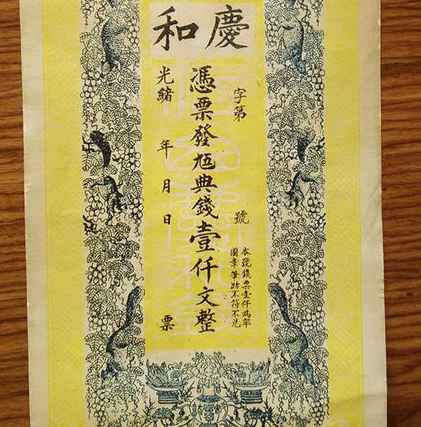 慶和
字第 號
本號錢票壹仟為率
圖章筆跡不符不兑
憑票發典錢壹仟文整
光緒 年 月 日 票